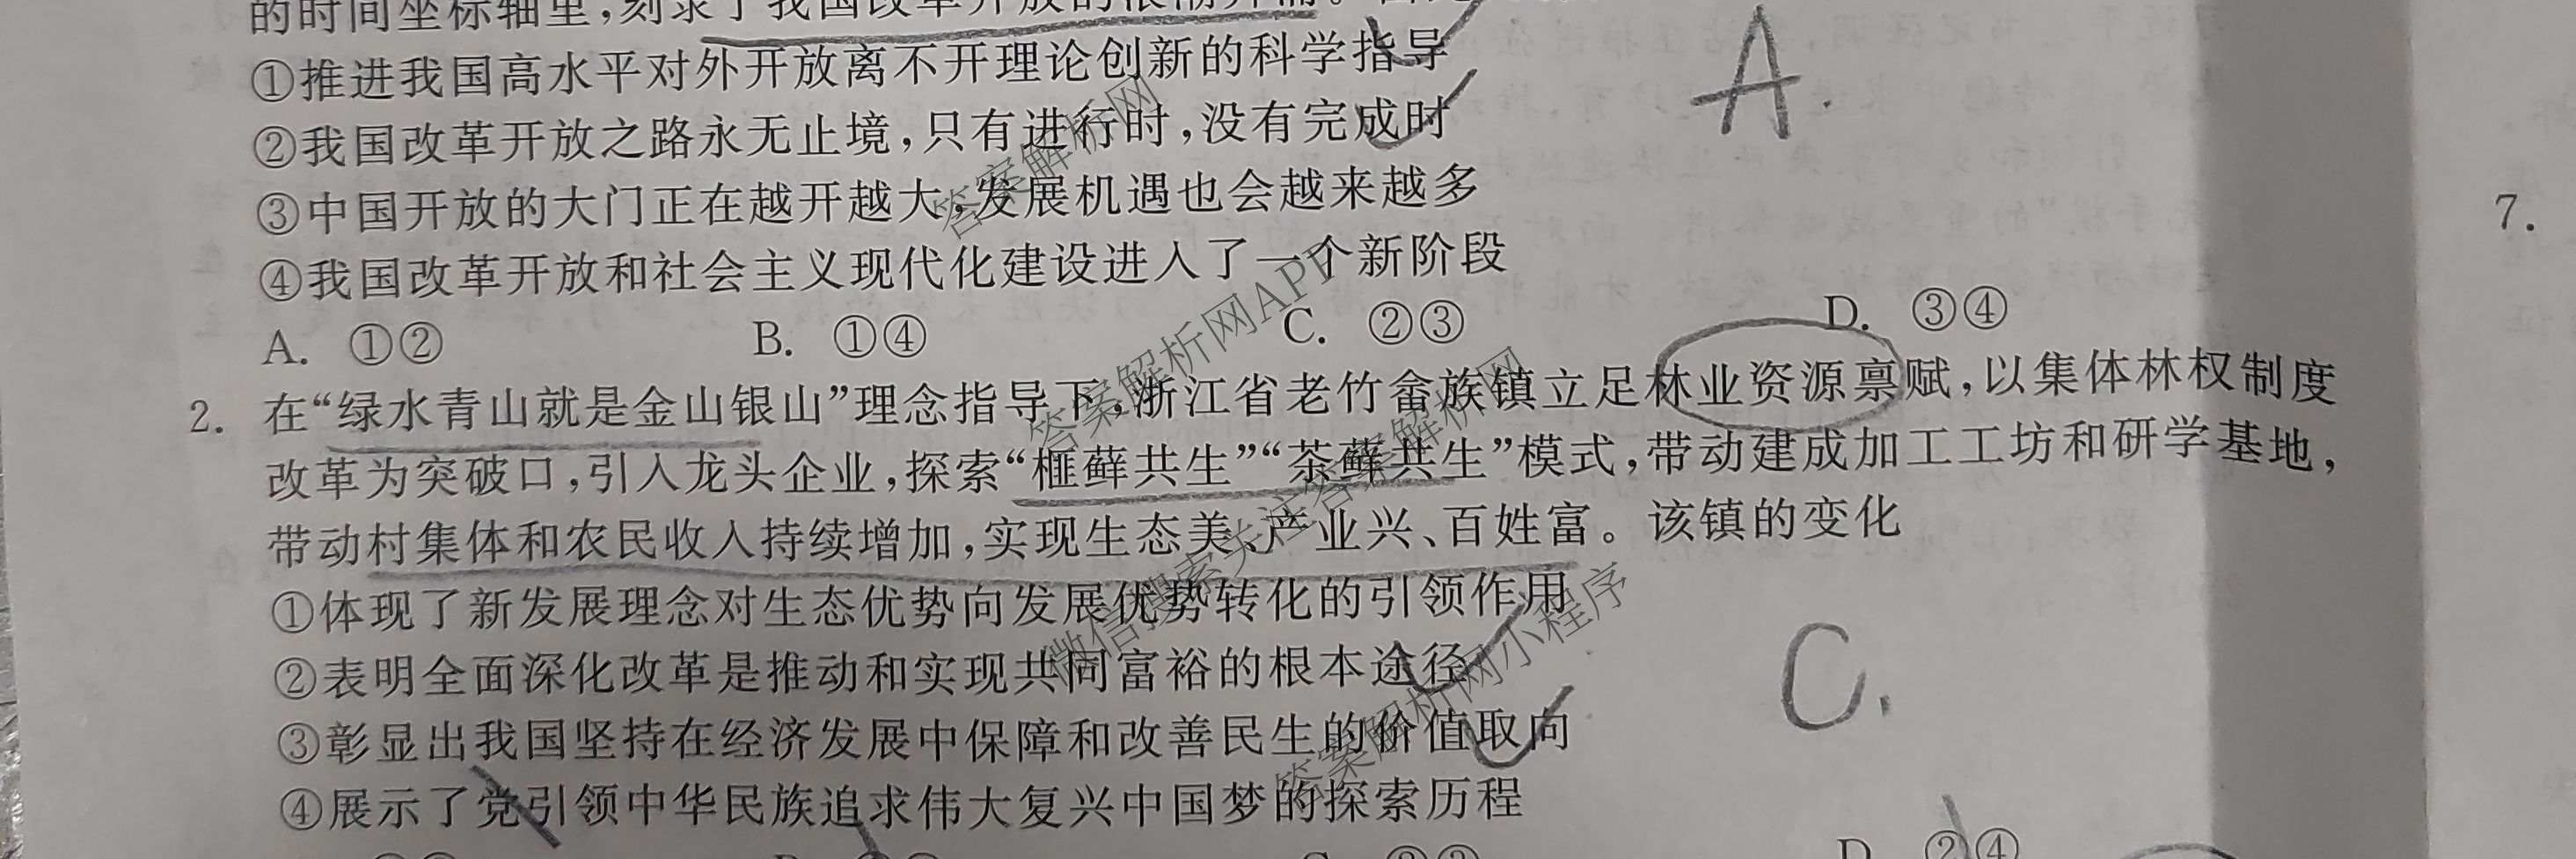 的时间坐标轴里,刻录了我国改革开放的浪潮奔涌。
①推进我国高水平对外开放离不开理论创新的科学指导
A.
②我国改革开放之路永无止境,只有进行时,没有完成时
③中国开放的大门正在越开越大,发展机遇也会越来越多
7.
④我国改革开放和社会主义现代化建设进入了一个新阶段
A. ①② B. ①④ C. ②③ D. ③④
2. 在“绿水青山就是金山银山”理念指导下,浙江省老竹畲族镇立足林业资源禀赋,以集体林权制度
改革为突破口,引入龙头企业,探索“榧藓共生”“茶藓共生”模式,带动建成加工工坊和研学基地,
带动村集体和农民收入持续增加,实现生态美、产业兴、百姓富。该镇的变化
①体现了新发展理念对生态优势向发展优势转化的引领作用
②表明全面深化改革是推动和实现共同富裕的根本途径
C.
③彰显出我国坚持在经济发展中保障和改善民生的价值取向
④展示了党引领中华民族追求伟大复兴中国梦的探索历程
D. ②④
答案解析网
答案解析网APP
微信搜索关注答案解析网
答案解析网小程序